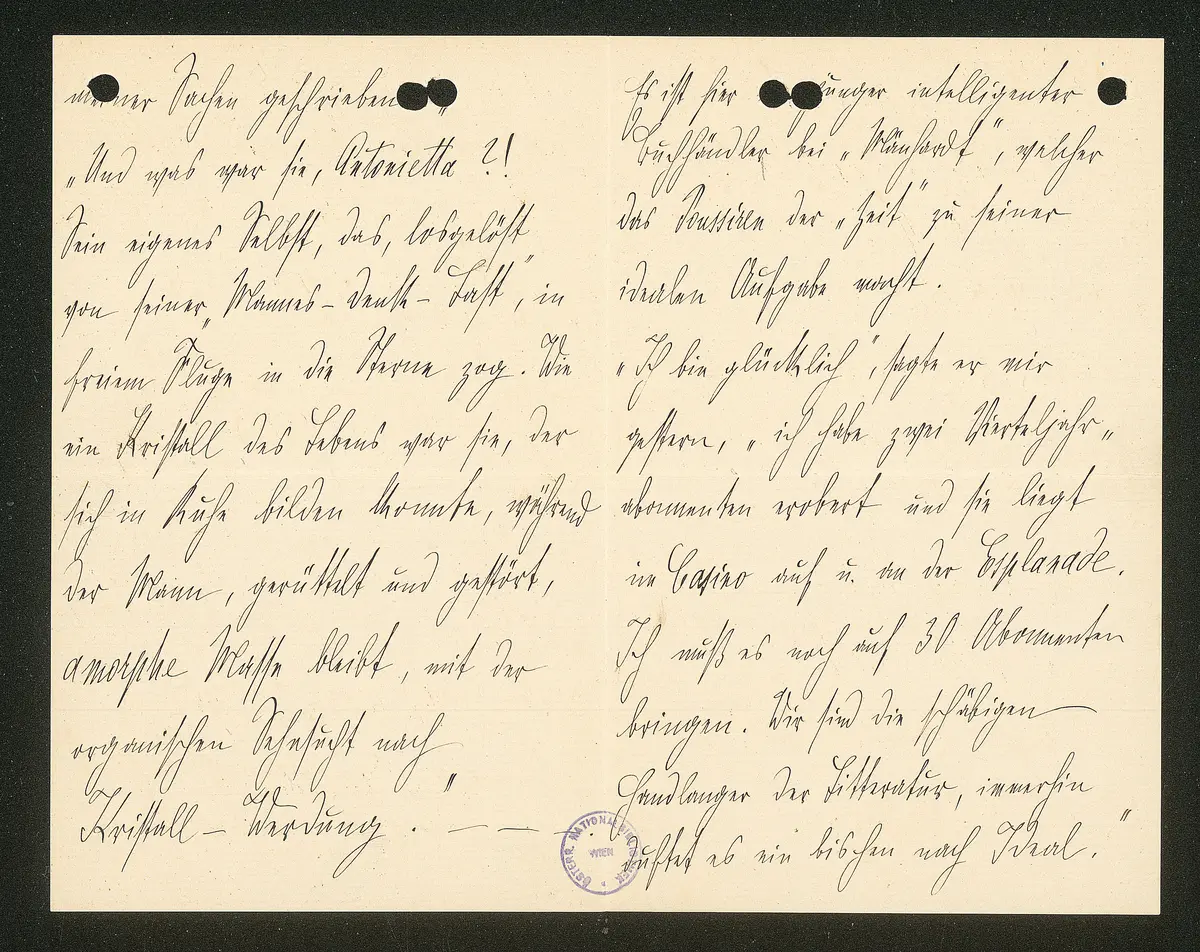 meiner Sachen geschrieben
„Und was war sie, Antonietta ?!
Sein eigenes Selbst, das, losgelöst
von seiner „Mannes – Denk – Last“, in
freiem Fluge in die Sterne zog. Wie
ein Kristall des Lebens war sie, der
sich in Ruhe bilden konnte, während
der Mann, gerüttelt und gestört,
amorphe Masse bleibt, mit der
organischen Sehnsucht nach
Kristall – Werdung.“ — — —
Es ist hier junger intelligenter
Buchhändler bei „Mänhardt“, welcher
das Poussiren der „Zeit“ zu seiner
idealen Aufgabe macht.
„Ich bin glücklich“, sagte er mir
gestern, „ich habe zwei Vierteljahr„
abonnenten erobert und sie liegt
im Casino auf u. an der Esplanade.
Ich muß es noch auf 30 Abonnenten
bringen. Wir sind die schäbigen
Handlanger der Litteratur, immerhin
duftet es ein bischen nach Ideal.“
ÖSTERR. NATIONALBIBLIOTHEK
WIEN